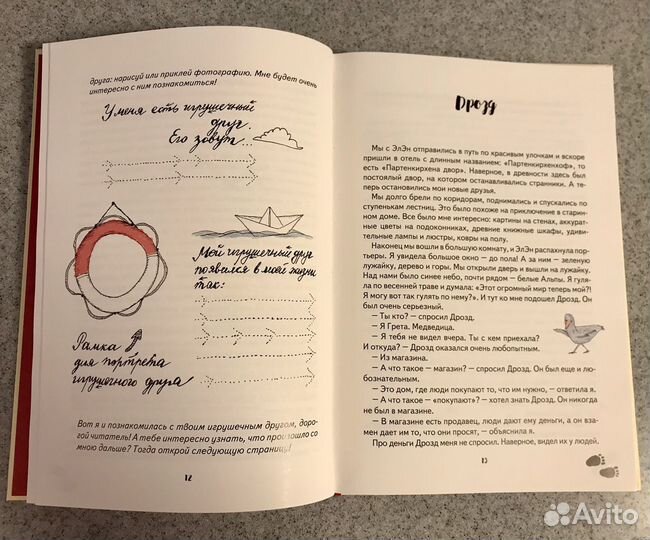 друга: нарисуй или приклей фотографию. Мне будет очень
интересно с ним познакомиться!
У меня есть игрушечный
друг.
Его зовут
Мой игрушечный друг
появился в моей жизни
так:
Рамка
для портрета
игрушечного друга
Вот я и познакомилась с твоим игрушечным другом, доро-
гой читатель! А тебе интересно узнать, что произошло со
мною дальше? Тогда открой следующую страницу!
12
Дрозд
Мы с ЭлЭн отправились в путь по красивым улочкам и вскоре
пришли в отель с длинным названием: «Партенкирхенхоф», «Пар-
тенкирхена двор». Наверное, в древности здесь был
постоялый двор, на котором останавливались странники. А те-
перь остановились мои новые друзья.
Мы долго брели по коридорам, поднимались и спускались по
ступенькам лестниц. Это было похоже на приключение в старин-
ном доме. Все было мне интересно: картины на стенах, аккурат-
ные цветы на подоконниках, древние книжные шкафы, удиви-
тельные лампы и люстры, ковры на полу.
Наконец мы вошли в большую комнату, и ЭлЭн распахнула пор-
тьеры. Я увидела большое окно – до пола! А за ним – зеленую
лужайку, дерево и горы. Мы открыли дверь и вышли на лужайку.
Над нами было синее небо, почти рядом – белые Альпы. Я гуля-
ла по весенней траве и думала: «Этот огромный мир теперь мой?!
Я могу вот так гулять по нему?». И тут ко мне подошел Дрозд. Он
был очень серьезный.
– Ты кто? – спросил Дрозд.
– Я Грета. Медведица.
– Я тебя не видел вчера. Ты с кем приехала?
И откуда? – Дрозд оказался очень любопытным.
– Из магазина.
– А что такое – магазин? – спросил Дрозд. Он был еще и лю-
бознательным.
– Это дом, где люди покупают то, что им нужно, – ответила я.
– А что такое – «покупают»? – хотел знать Дрозд. Он никогда
не был в магазине.
– В магазине есть продавец, люди дают ему деньги, а он вза-
мен дает им то, что они просят, – объяснила я.
Про деньги Дрозд меня не спросил. Наверное, видел их у людей.
13
Avito